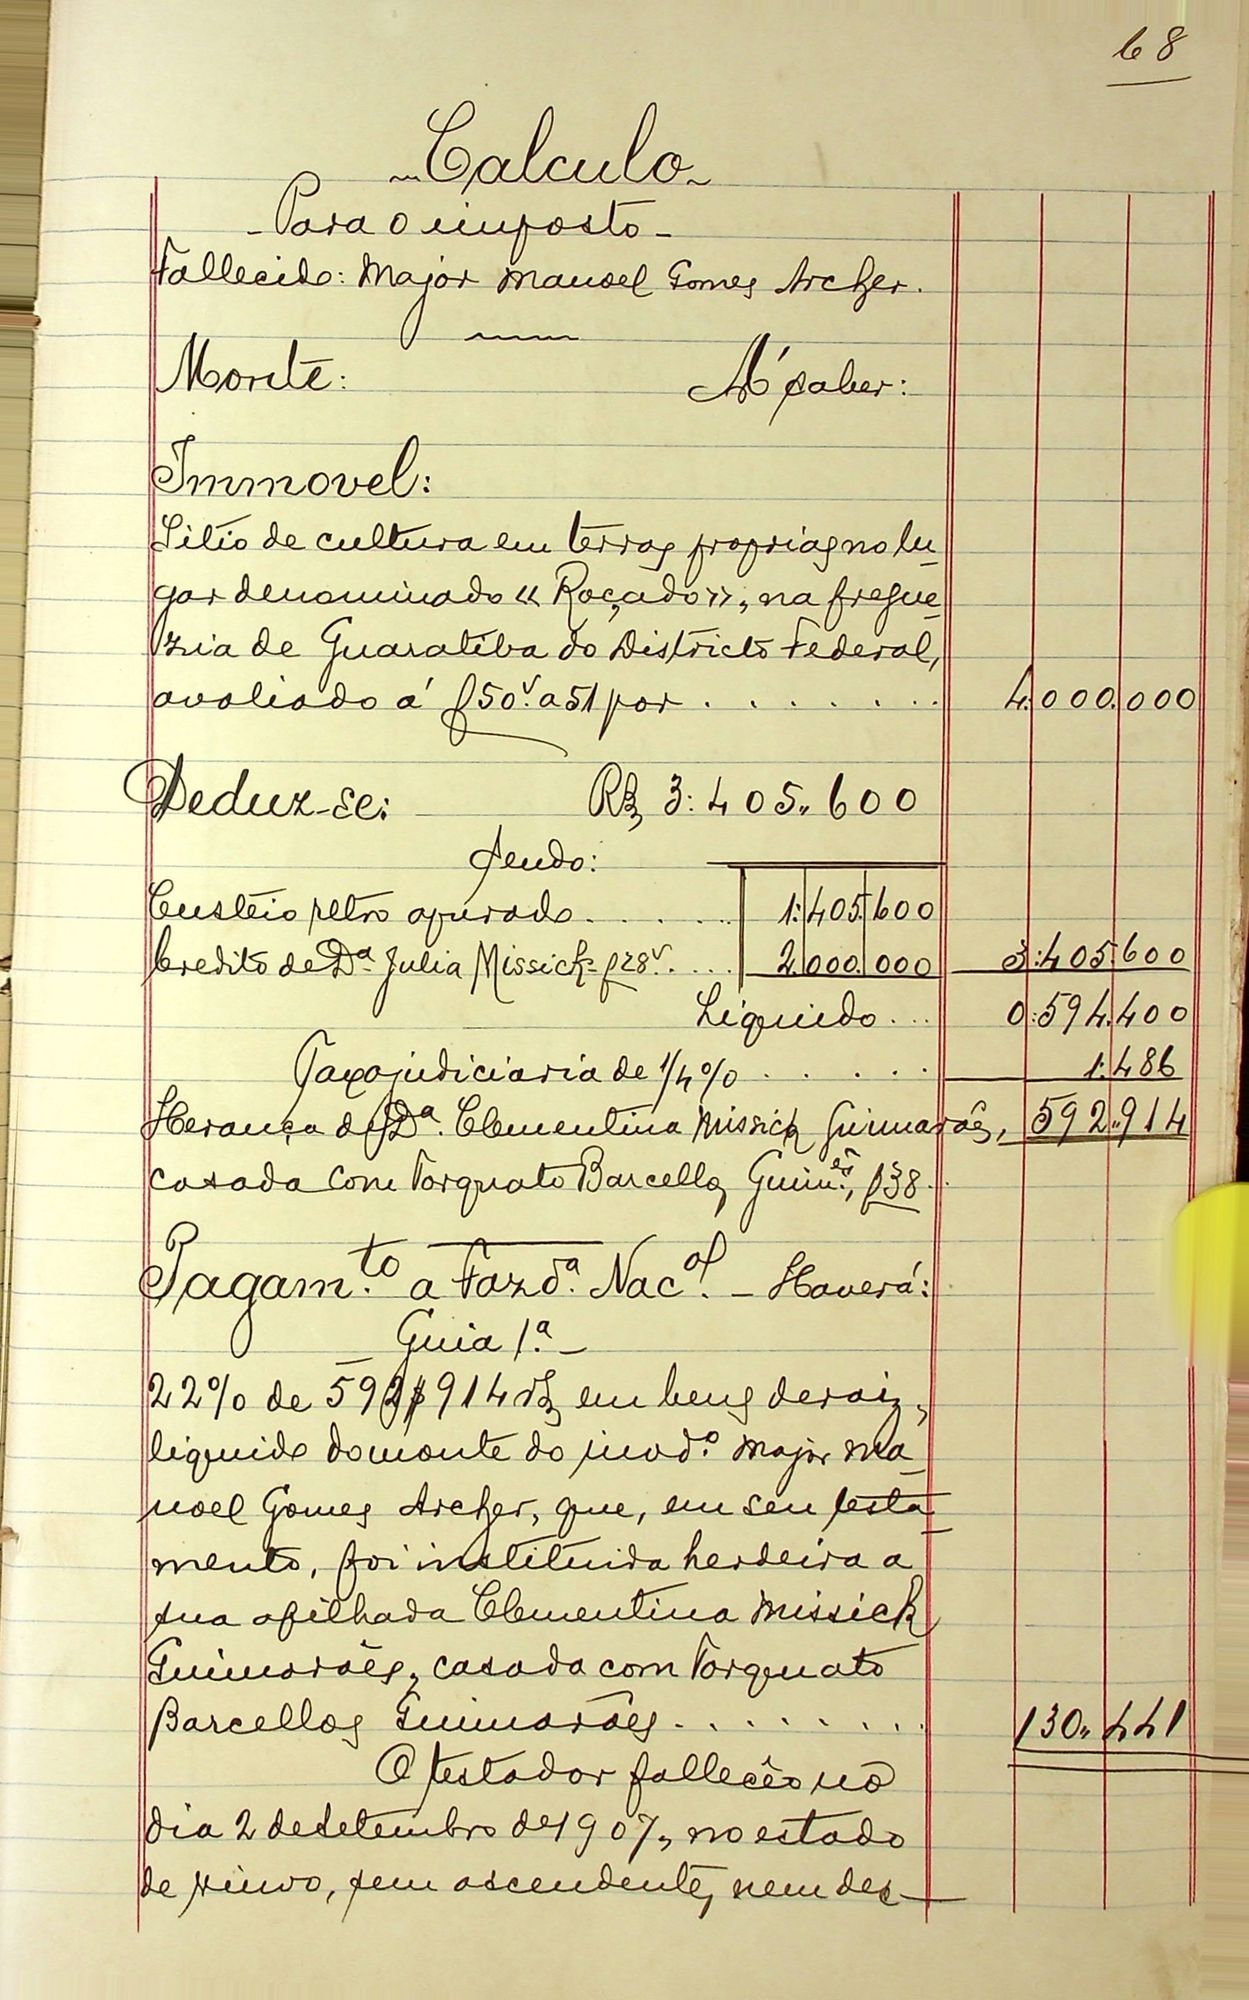 68
Calculo
- Para o imposto -
Fallecido: Major Manoel Gomes Archer.
Monte: A' saber:
Immovel:
Sitio de cultura em terras proprias no lu-
gar denominado « Roçado », na fregue-
zia de Guaratiba do Districto Federal,
avaliado á f 50v. a 51 por . . . . . . . 4.000.000
Deduz-se: Rs 3:405.600
sendo:
Custeio retro apurado . . . . . . 1:405.600
Credito de Da. Julia Missick - f 28v. . . . . 2.000.000 3:405.600
Liquido . . . 0:594.400
Taxa judiciaria de 1/4 % . . . . . 1.486
Herança de Da. Clementina Missick Guimarães, 592.914
casada com Torquato Barcellos Guim.es, f 38.
Pagam.to a Fazd.a Nac.al - Haverá:
- Guia 1.a -
22% de 592$914 rs em bens de raiz,
liquido do monte do invd.o Major Ma-
noel Gomes Archer, que, em seu testa-
mento, foi instituida herdeira a
sua afilhada Clementina Missick
Guimarães, casada com Torquato
Barcellos Guimarães . . . . . . . . 130.441
O testador falleceo no
dia 2 de Setembro de 1907, no estado
de viuvo, sem ascendentes, nem des-